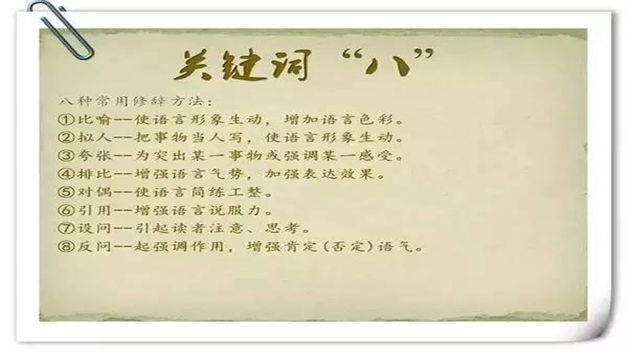 关键词“八”
八种常用修辞方法:
①比喻--使语言形象生动，增加语言色彩。
②拟人--把事物当人写，使语言形象生动。
③夸张--为突出某一事物或强调某一感受。
④排比--增强语言气势，加强表达效果。
⑤对偶--使语言简练工整。
⑥引用--增强语言说服力。
⑦设问--引起读者注意、思考。
⑧反问--起强调作用，增强肯定(否定)语气。